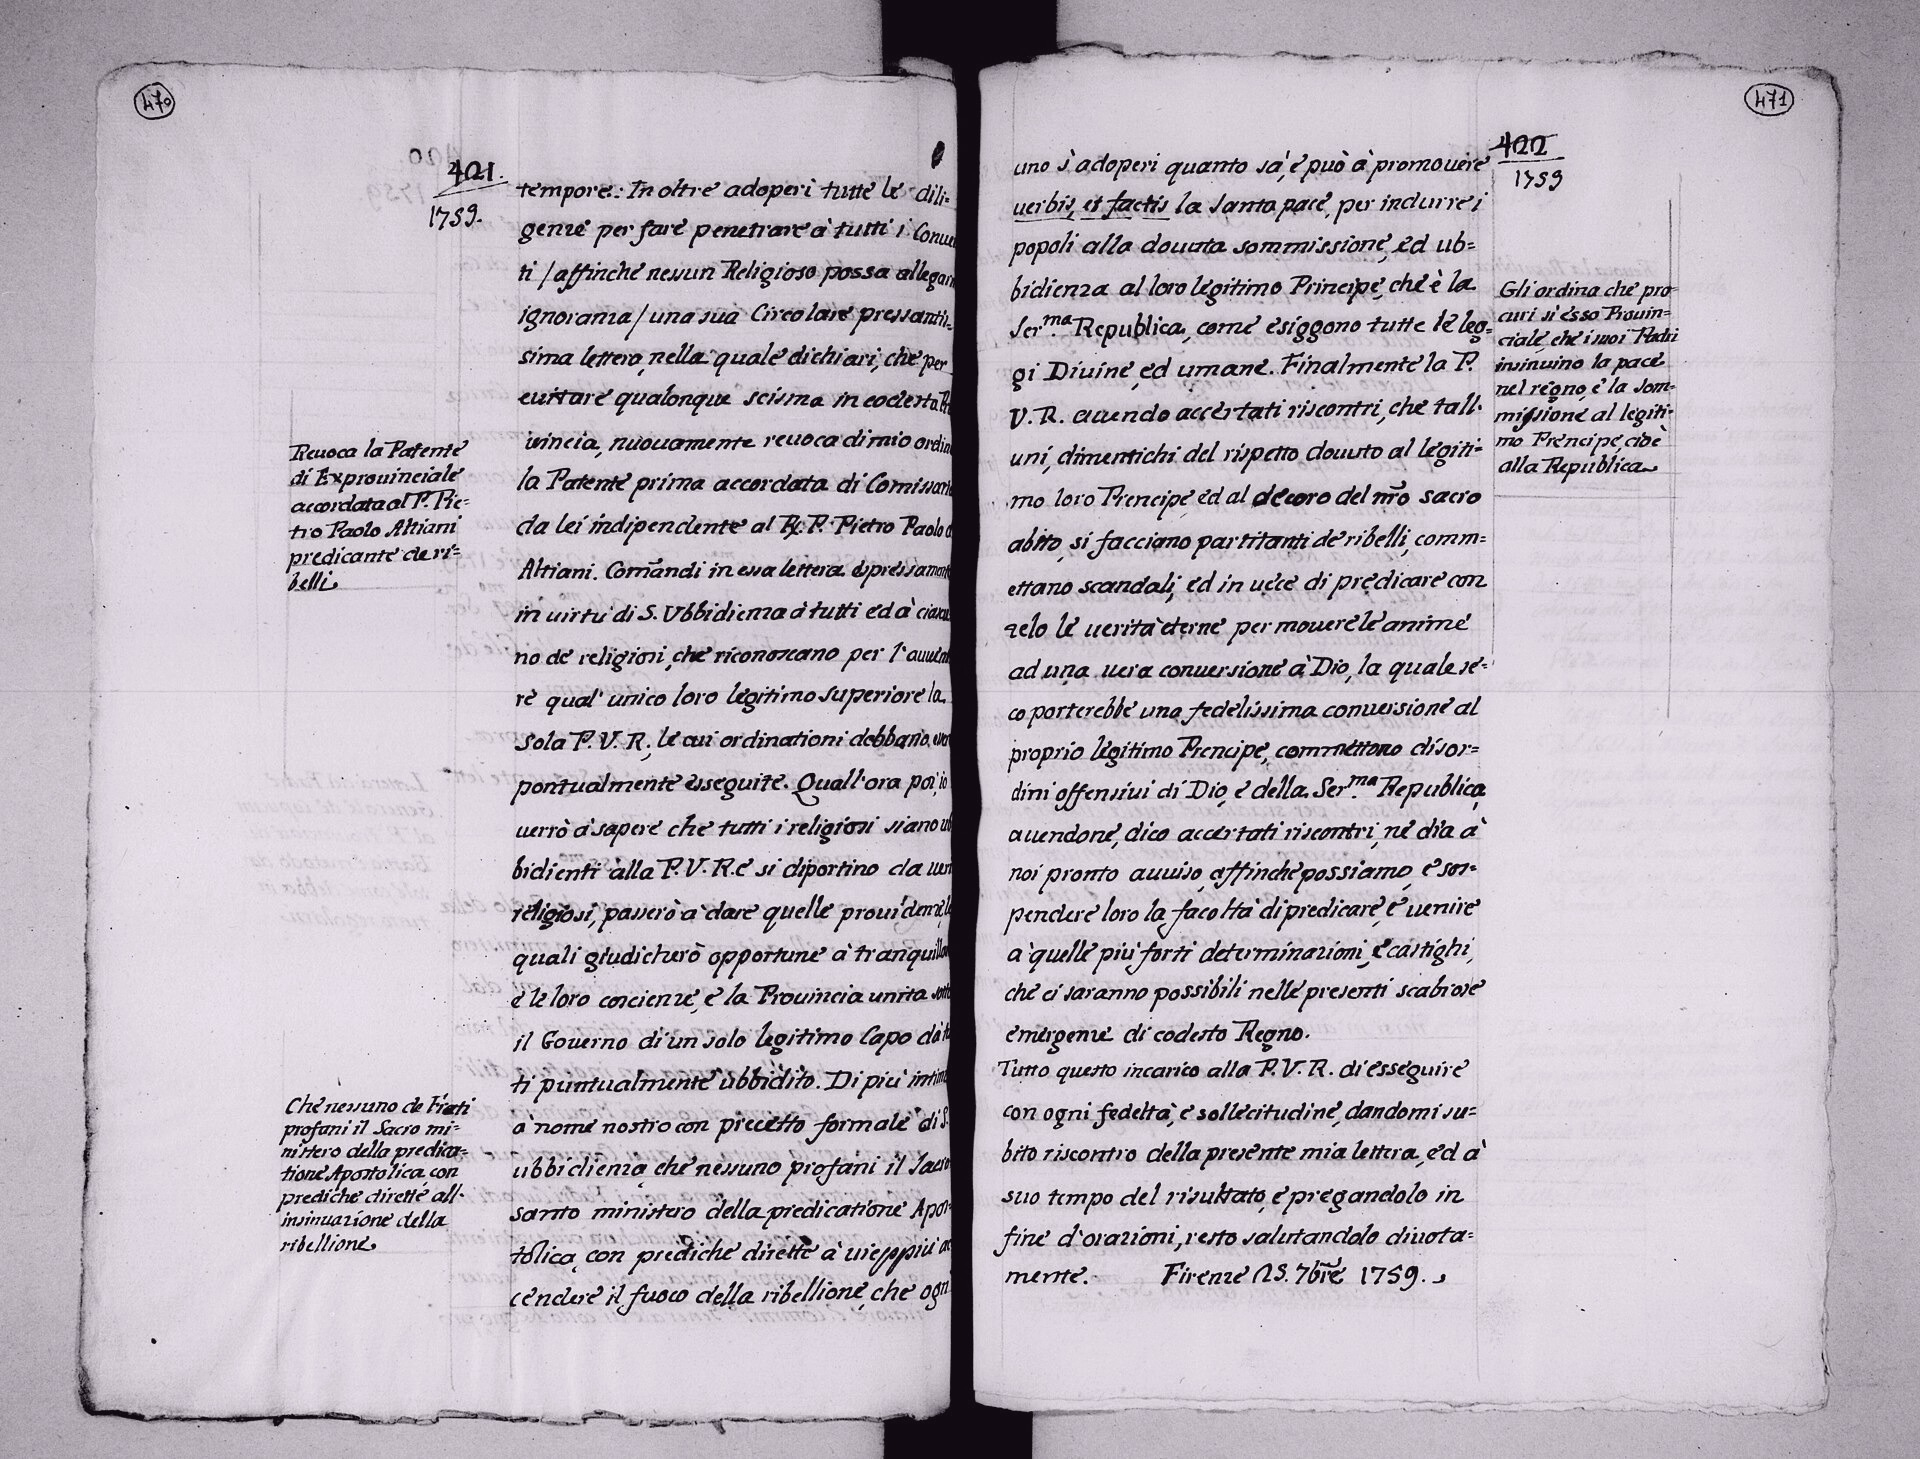 470
421.
1759.
tempore.: In oltre adoperi tutte le dili-
genze per fare penetrare à tutti i Conue
ti / affinche nessun Religioso possa allegar
ignoranza / una sua Circolare pressantis-
sima lettera, nella quale dichiari, che per
euitare qualonque scisma in codesta Pro
uincia, nuouamente reuoca di mio ordin
la Patente prima accordata di Comissario
da lei indipendente al R. P. Pietro Paolo d
Altiani. Comandi in essa lettera espressamente
in uirtù di S. Ubbidienza à tutti ed à ciascu
no de religiosi, che riconoscano per l'auueni
re qual' unico loro legitimo superiore la
sola P. V. R., le cui ordinationi debbano, esser
pontualmente esseguite. Quall'ora poi, io
uerrò à sapere che tutti i religiosi siano ub
bidienti alla P. V. R. e si diportino da ueri
religiosi, passerò à dare quelle prouidenze, le
quali giudicherò opportune à tranquillar
e le loro coscienze, e la Prouincia unita sotto
il Gouerno di un solo legitimo Capo dà tu
ti puntualmente ubbidito. Di più intima
à nome nostro con precetto formale di S.
ubbidienza, che nessuno profani il Sacro
santo ministero della predicatione Apos-
tolica, con prediche dirette à uieppiù ac
cendere il fuoco della ribellione, che ogn
Reuoca la Patente
di Exprouinciale
accordata al P. Pie-
tro Paolo Altiani
predicante de ri-
belli
Che nessuno de Frati
profani il Sacro mi-
nistero della predica-
tione Apostolica, con
prediche dirette all'
insinuazione della
ribellione
471
422
1759
uno s'adoperi quanto sà, e può à promouere
uerbis, et factis la Santa pace, per indurre i
popoli alla douuta sommissione, ed ub-
bidienza al loro legitimo Principe, che è la
Ser.ma Republica, come esiggono tutte le leg-
gi Diuine, ed umane. Finalmente la P.
V. R. auendo accertati riscontri, che tall-
uni, dimentichi del rispetto douuto al legiti-
mo loro Prencipe ed al decoro del nro sacro
abito, si facciano partitanti de ribelli, comm-
ettano scandali, ed in uece di predicare con
zelo le uerità eterne per mouere le anime
ad una uera conuersione à Dio, la quale se-
co porterebbe una fedelissima conuersione al
proprio legitimo Prencipe, commettono disor-
dini offensiui di Dio, e della Ser.ma Republica,
auendone, dico accertati riscontri, ne dia à
noi pronto auuiso, affinche possiamo, e sos-
pendere loro la facoltà di predicare, e uenire
à quelle più forti determinazioni, e castighi,
che ci saranno possibili nelle presenti scabrose
emergenze di codesto Regno.
Tutto questo incarico alla P. V. R. di esseguire
con ogni fedeltà, e sollecitudine, dandomi su-
bito riscontro della presente mia lettera, ed à
suo tempo del risultato, e pregandolo in
fine d'orazioni, resto salutandolo diuota-
mente. Firenze 25. 7bre 1759.
Gli ordina che pro-
curi si esso Prouin-
ciale, che i suoi Padri
insinuino la pace
nel regno, e la som-
missione al legiti-
mo Prencipe, cioè
alla Republica